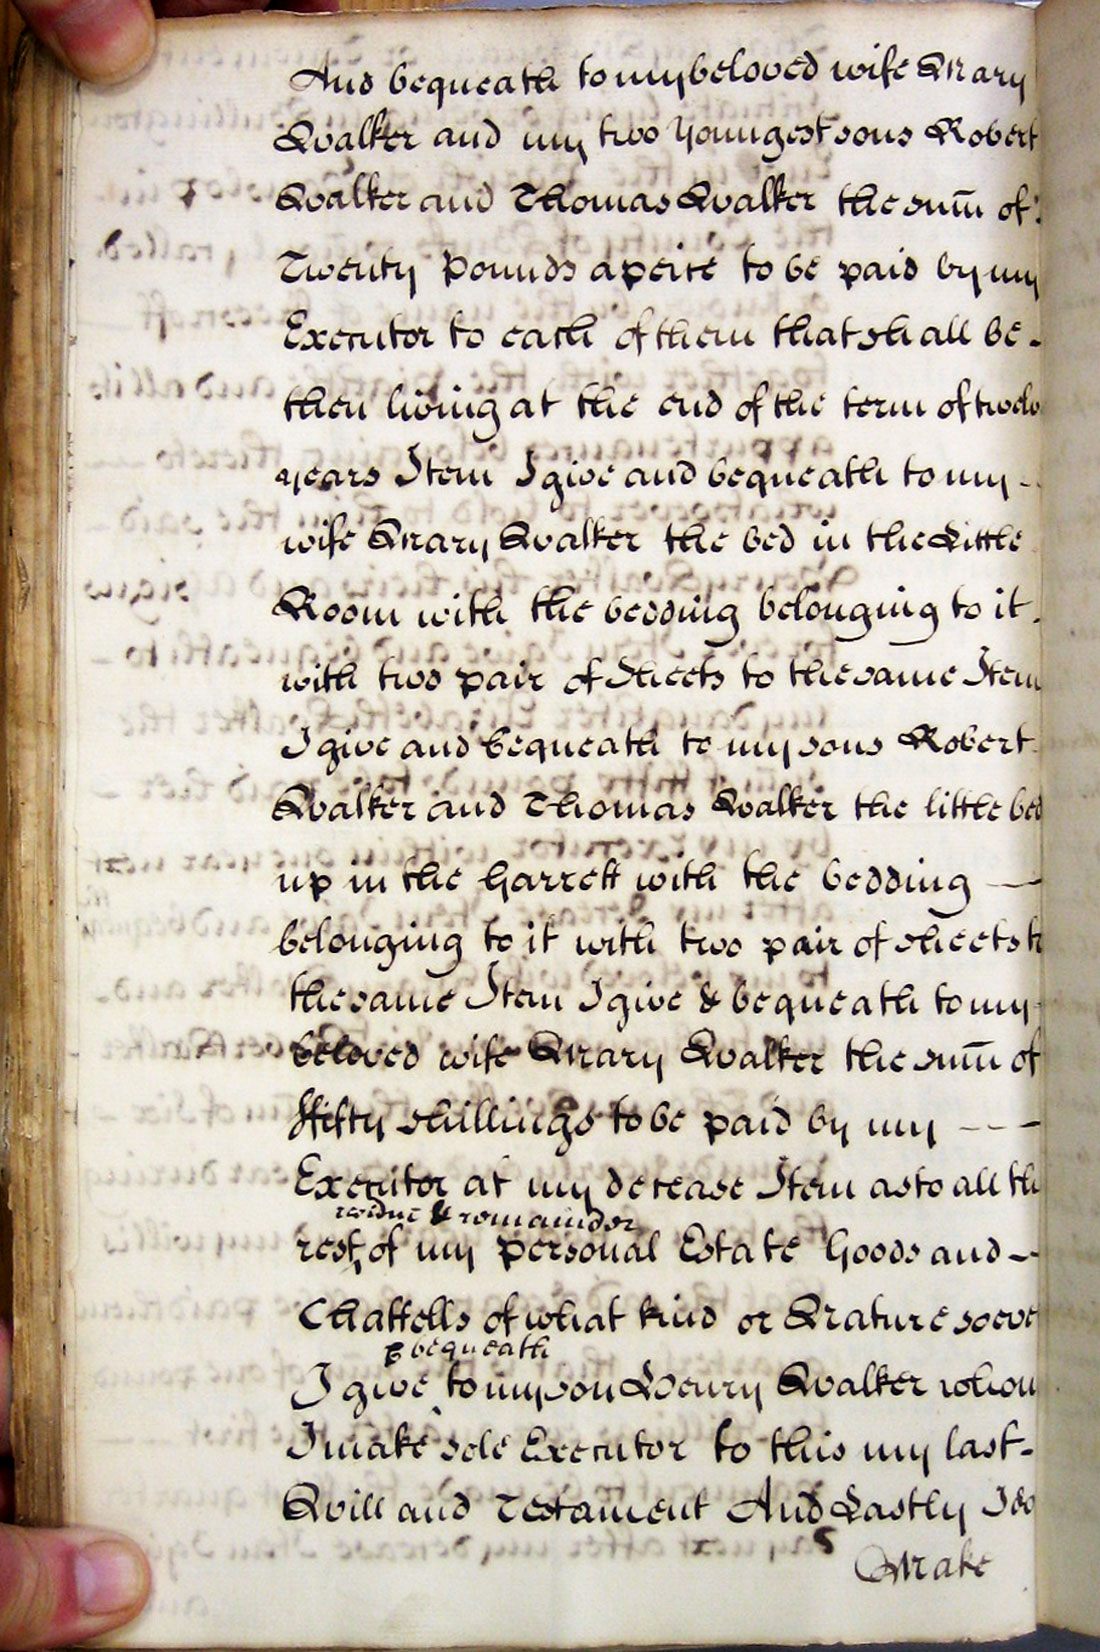 And bequeath to my beloved wife Mary
Walker and my two Youngest sons Robert
Walker and Thomas Walker the sum̄ of
Twenty Pounds apeice to be paid by my
Executor to each of them that shall be -
then living at the end of the term of twelv
years Item I give and bequeath to my -
wife Mary Walker the bed in the Little
Room with the bedding belonging to it
with two pair of Sheets to the same Item
I give and bequeath to my sons Robert
Walker and Thomas Walker the little bed
up in the Garrett with the bedding —
belonging to it with two pair of sheets t
the same Item I give & bequeath to my
beloved wife Mary Walker the sum̄ of
ffifty shillings to be paid by my - - -
Executor at my decease Item as to all th
residue & remainder
rest of my personal Estate Goods and -
Chattells of what kind or Nature soeve
& bequeath
I give to my son Henry Walker whom
I make sole Executor to this my last -
Will and Testament And Lastly I do
Make